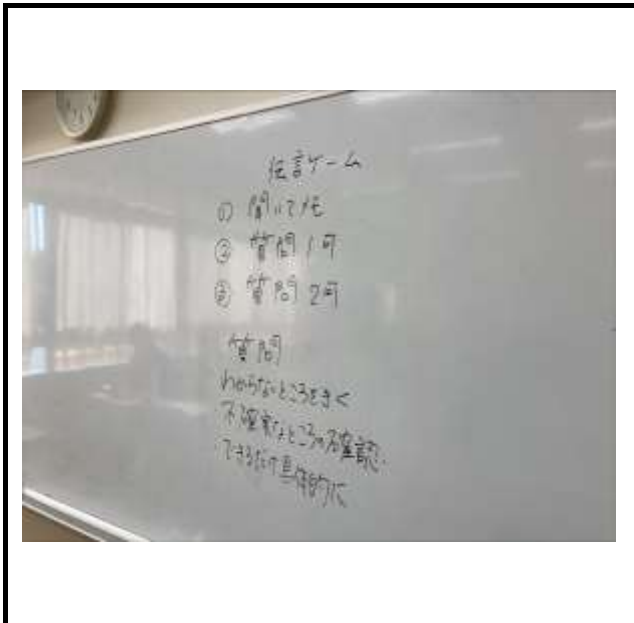 伝言ゲーム
① 聞いてメモ
② 質問1可
③ 質問2可
質問
わからないところをきく
不確実なところの確認.
できるだけ具体的に